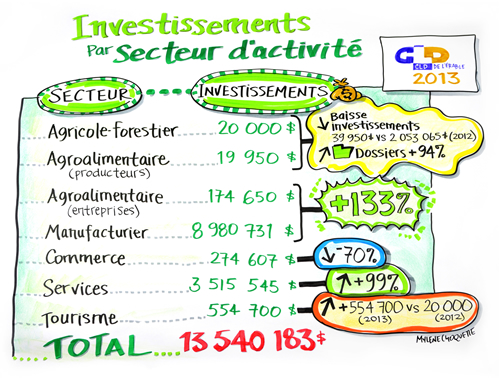 Investissements
Par Secteur d'activité
CLD DE L'ÉRABLE
2013
SECTEUR INVESTISSEMENTS
Agricole-forestier 20 000 $
Agroalimentaire 19 950 $
(producteurs)
↓ Baisse
investissements
39 950$ vs 2 053 065$ (2012)
↑ Dossiers +94%
Agroalimentaire 174 650 $
(entreprises)
Manufacturier 8 980 731 $
+133%
Commerce 274 607 $ ↓ -70%
Services 3 515 545 $ ↑ +99%
Tourisme 554 700 $ ↑ +554 700 vs 20 000
(2013) (2012)
TOTAL... 13 540 183$
MYLÈNE CHOQUETTE